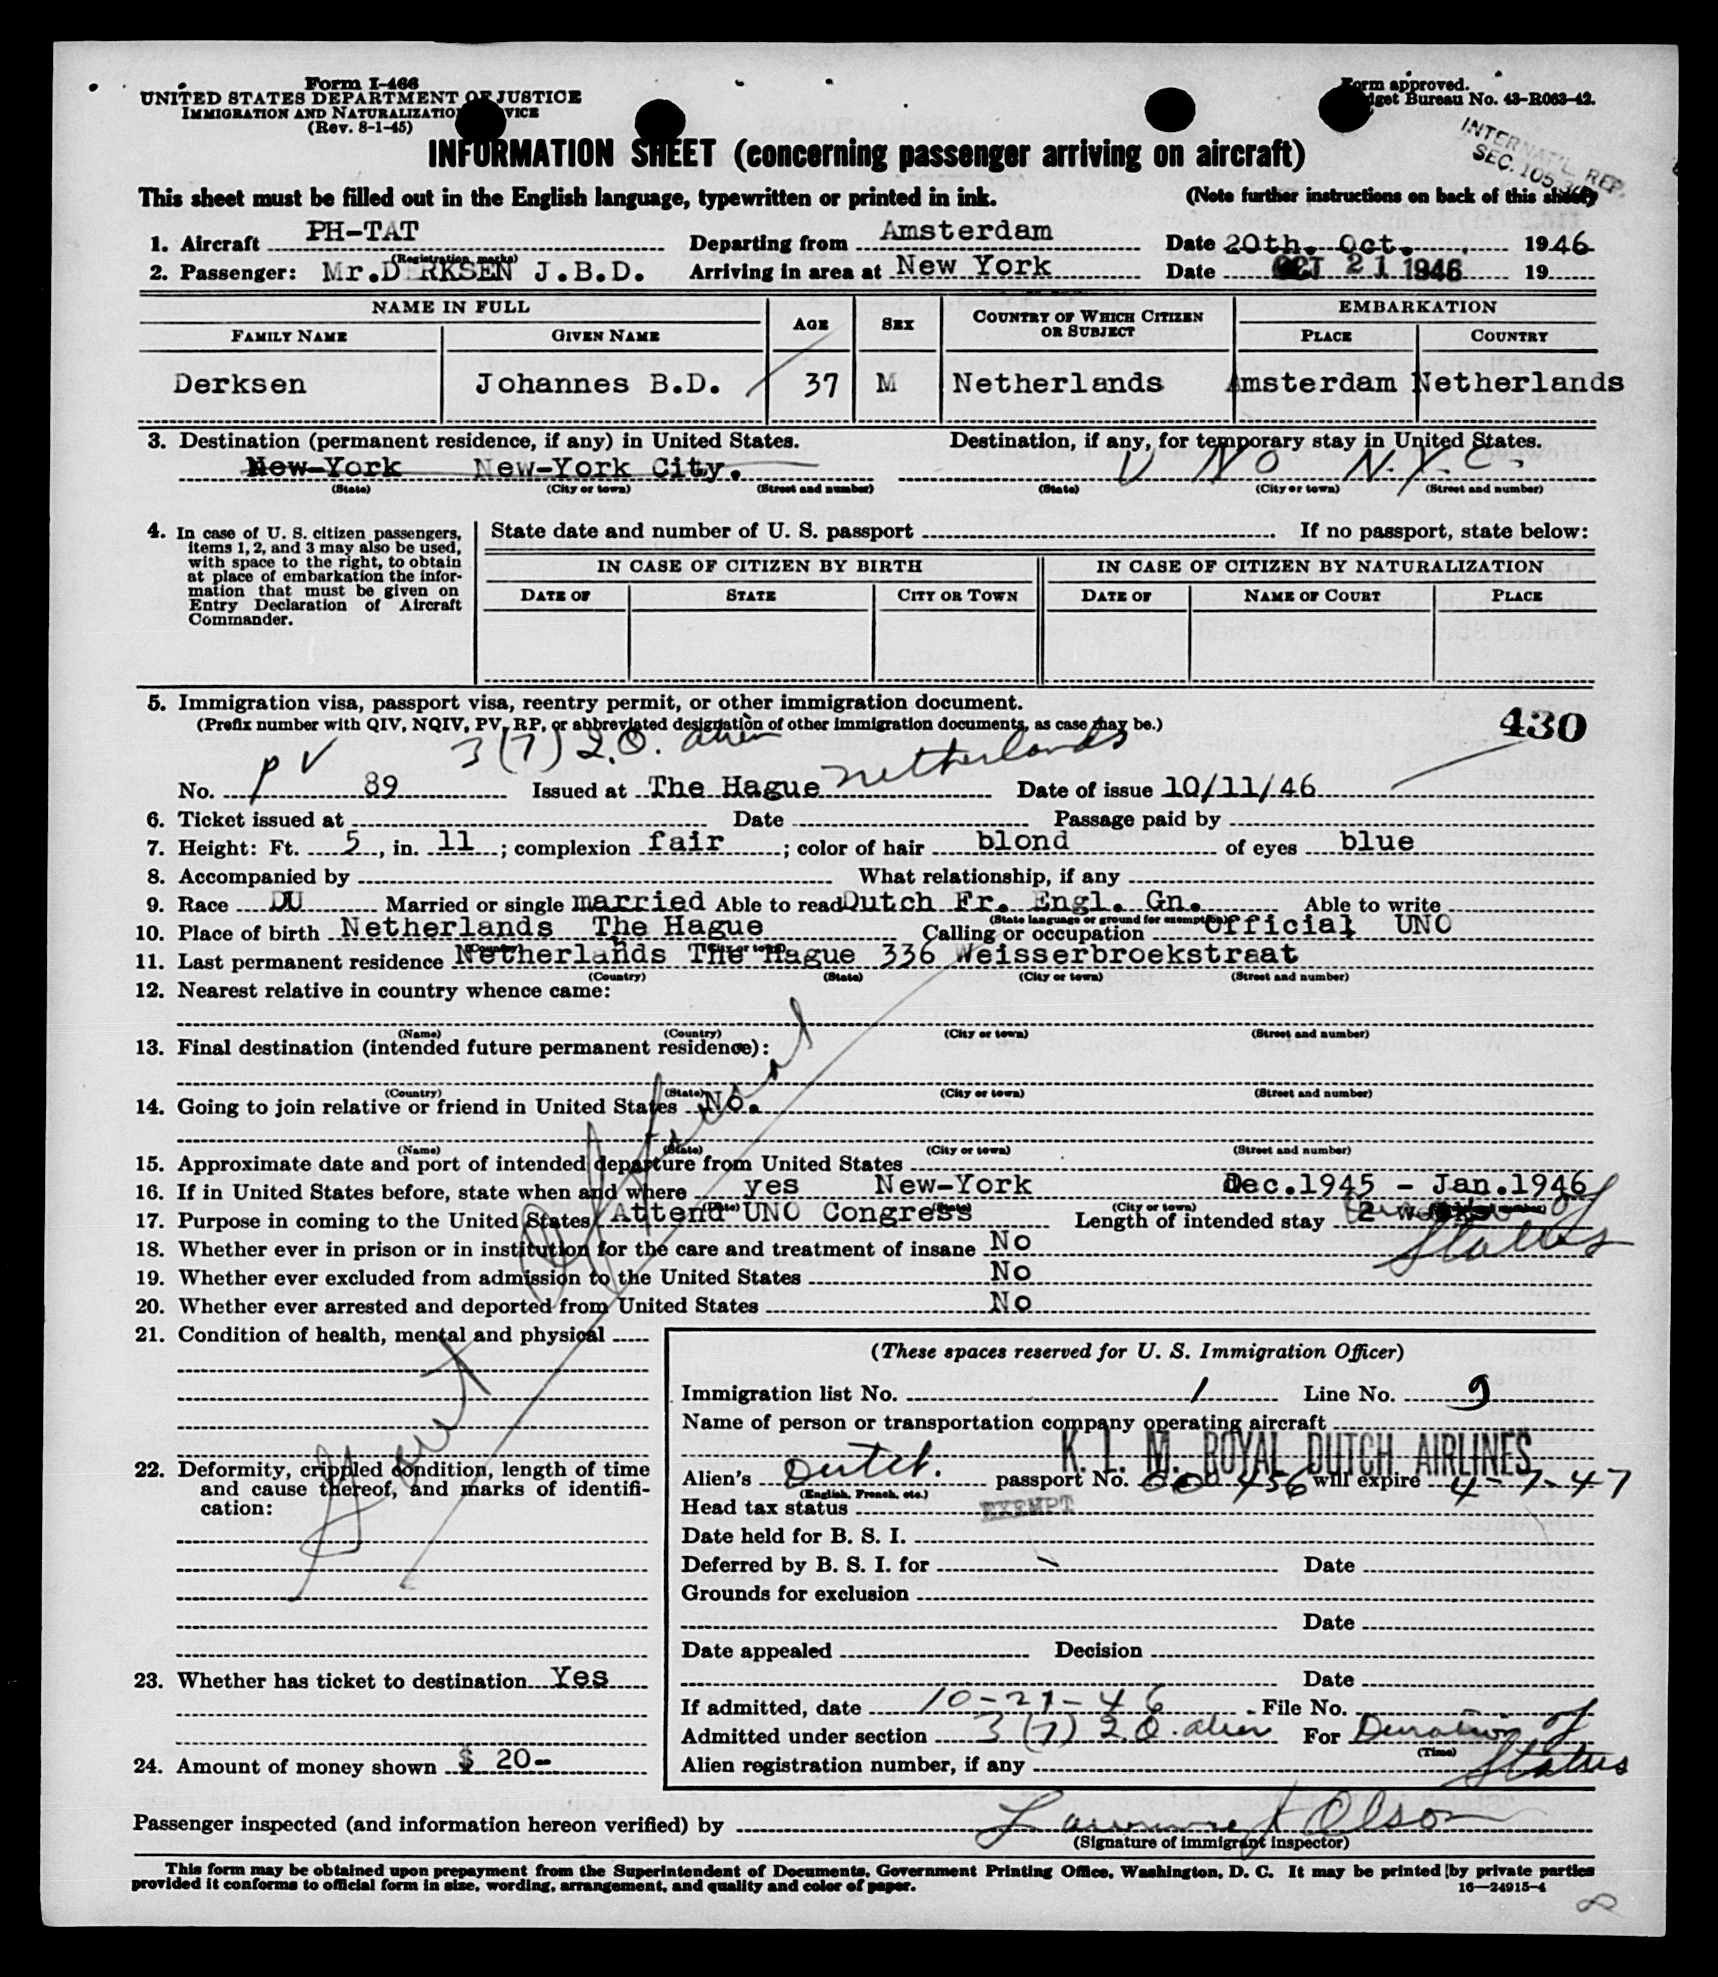 Form I-466
UNITED STATES DEPARTMENT OF JUSTICE
IMMIGRATION AND NATURALIZATION SERVICE
(Rev. 8-1-45)
Form approved.
Budget Bureau No. 43-R063-42.
INTERNAT'L REP.
SEC. 105.
INFORMATION SHEET (concerning passenger arriving on aircraft)
This sheet must be filled out in the English language, typewritten or printed in ink. (Note further instructions on back of this sheet)
1. Aircraft PH-TAT Departing from Amsterdam Date 20th. Oct. 1946
(Registration marks)
2. Passenger: Mr.DIRKSEN J.B.D. Arriving in area at New York Date OCT 21 1946 19
NAME IN FULL AGE SEX COUNTRY OF WHICH CITIZEN OR SUBJECT EMBARKATION
FAMILY NAME GIVEN NAME PLACE COUNTRY
Derksen Johannes B.D. 37 M Netherlands Amsterdam Netherlands
3. Destination (permanent residence, if any) in United States. Destination, if any, for temporary stay in United States.
New-York New-York City. U N O N.Y.C.
(State) (City or town) (Street and number) (State) (City or town) (Street and number)
4. In case of U. S. citizen passengers, items 1, 2, and 3 may also be used, with space to the right, to obtain at place of embarkation the information that must be given on Entry Declaration of Aircraft Commander.
State date and number of U. S. passport If no passport, state below:
IN CASE OF CITIZEN BY BIRTH IN CASE OF CITIZEN BY NATURALIZATION
DATE OF STATE CITY OR TOWN DATE OF NAME OF COURT PLACE
5. Immigration visa, passport visa, reentry permit, or other immigration document.
(Prefix number with QIV, NQIV, PV, RP, or abbreviated designation of other immigration documents, as case may be.)
430
3(7) 2.O. alien
No. PV 89 Issued at The Hague Netherlands Date of issue 10/11/46
6. Ticket issued at Date Passage paid by
7. Height: Ft. 5, in. 11; complexion fair; color of hair blond of eyes blue
8. Accompanied by What relationship, if any
9. Race DU Married or single married Able to read Dutch Fr. Engl. Gn. Able to write
(State language or ground for exemption)
10. Place of birth Netherlands The Hague Calling or occupation Official UNO
(Country) (City or town)
11. Last permanent residence Netherlands The Hague 336 Weisserbroekstraat
(Country) (State) (City or town) (Street and number)
12. Nearest relative in country whence came:
(Name) (Country) (City or town) (Street and number)
13. Final destination (intended future permanent residence):
(Country) (State) (City or town) (Street and number)
14. Going to join relative or friend in United States No.
(Name) (State) (City or town) (Street and number)
15. Approximate date and port of intended departure from United States
16. If in United States before, state when and where yes New-York Dec.1945 - Jan.1946
(Date) (State) (City or town) (Street and number)
17. Purpose in coming to the United States Attend UNO Congress Length of intended stay 2 weeks Duration of Status
18. Whether ever in prison or in institution for the care and treatment of insane No
19. Whether ever excluded from admission to the United States No
20. Whether ever arrested and deported from United States No
Gov't Official
21. Condition of health, mental and physical
22. Deformity, crippled condition, length of time and cause thereof, and marks of identification:
23. Whether has ticket to destination Yes
24. Amount of money shown $ 20-
(These spaces reserved for U. S. Immigration Officer)
Immigration list No. 1 Line No. 9
Name of person or transportation company operating aircraft
K. L. M. ROYAL DUTCH AIRLINES
Alien's Dutch. passport No. 000456 will expire 4-7-47
(English, French, etc.)
Head tax status EXEMPT
Date held for B. S. I.
Deferred by B. S. I. for Date
Grounds for exclusion
Date
Date appealed Decision
Date
If admitted, date 10-21-46 File No.
Admitted under section 3(7) 2.O. alien For Duration of Status
(Time)
Alien registration number, if any
Passenger inspected (and information hereon verified) by Lawrence J Olson
(Signature of immigrant inspector)
This form may be obtained upon prepayment from the Superintendent of Documents, Government Printing Office, Washington, D. C. It may be printed by private parties
provided it conforms to official form in size, wording, arrangement, and quality and color of paper.
16—24915-4